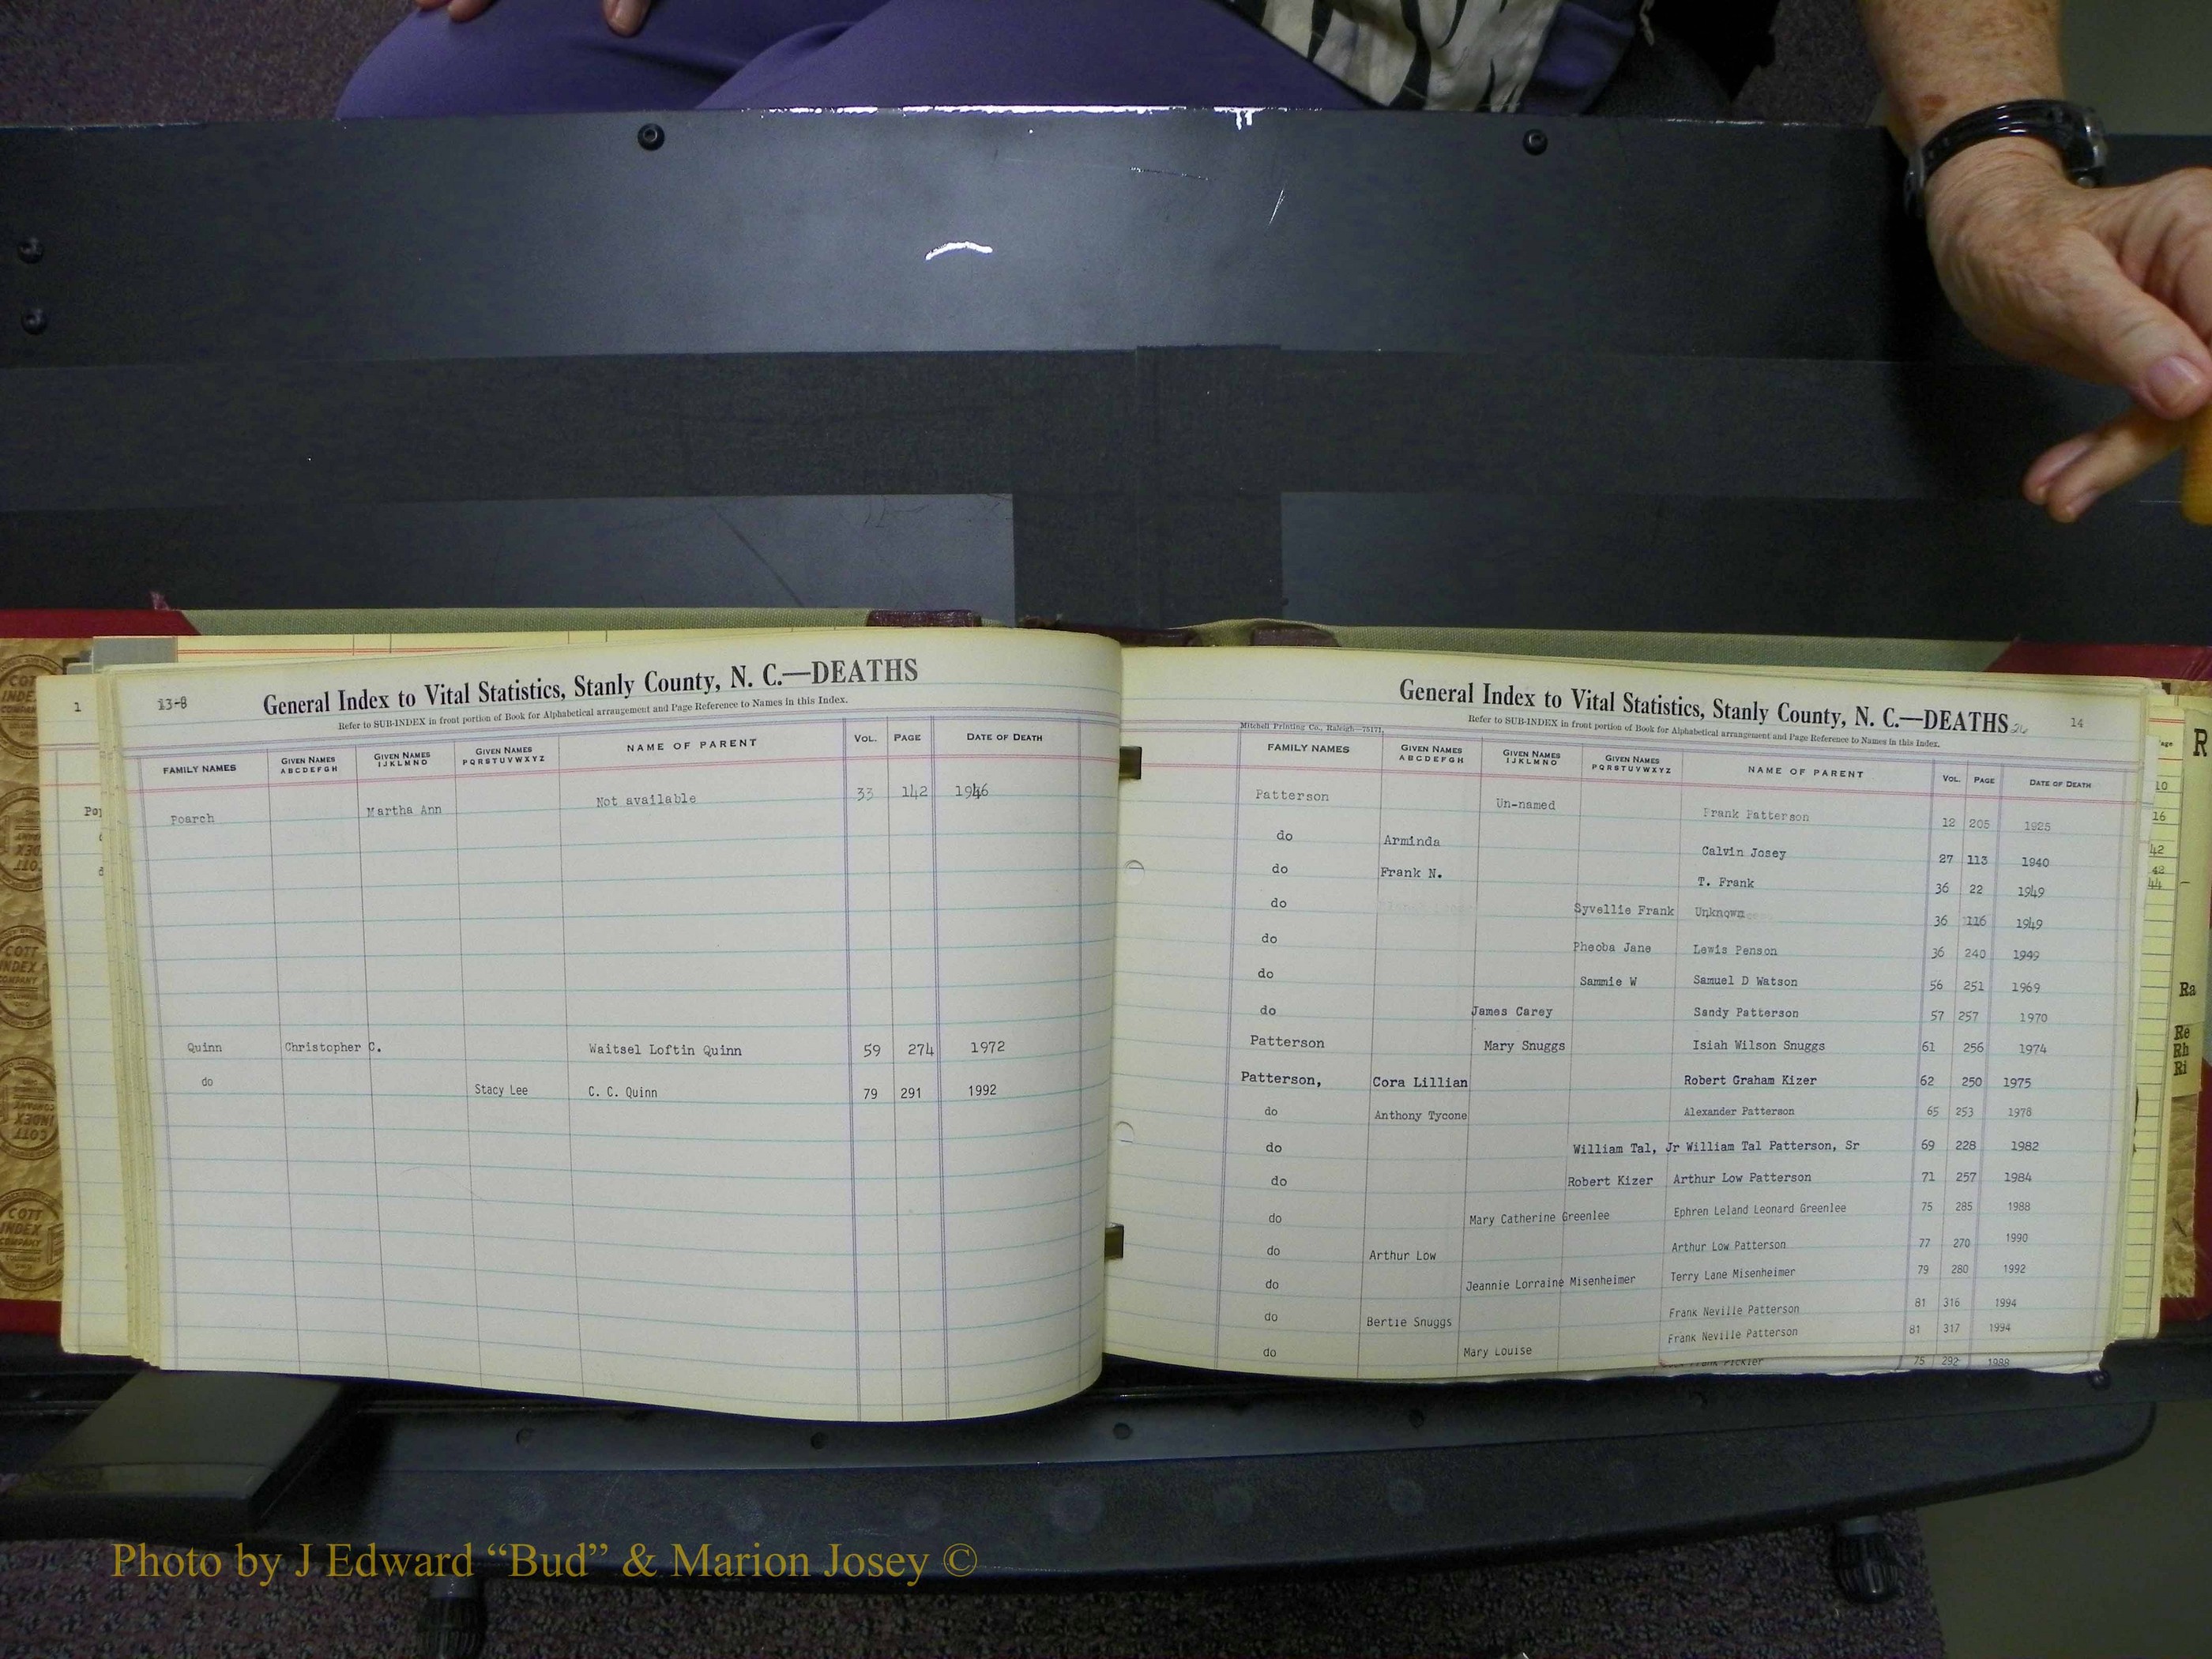 13-8
General Index to Vital Statistics, Stanly County, N. C.—DEATHS
Refer to SUB-INDEX in front portion of Book for Alphabetical arrangement and Page Reference to Names in this Index.
FAMILY NAMES GIVEN NAMES ABCDEFGH GIVEN NAMES IJKLMNO GIVEN NAMES PQRSTUVWXYZ NAME OF PARENT VOL. PAGE DATE OF DEATH
Poarch Martha Ann Not available 33 142 1946
Quinn Christopher C. Waitsel Loftin Quinn 59 274 1972
do Stacy Lee C. C. Quinn 79 291 1992
General Index to Vital Statistics, Stanly County, N. C.—DEATHS 26 14
Refer to SUB-INDEX in front portion of Book for Alphabetical arrangement and Page Reference to Names in this Index.
Mitchell Printing Co., Raleigh—75171,
FAMILY NAMES GIVEN NAMES ABCDEFGH GIVEN NAMES IJKLMNO GIVEN NAMES PQRSTUVWXYZ NAME OF PARENT VOL. PAGE DATE OF DEATH
Patterson Un-named Frank Patterson 12 205 1925
do Arminda Calvin Josey 27 113 1940
do Frank N. T. Frank 36 22 1949
do Syvellie Frank Unknown 36 116 1949
do Pheoba Jane Lewis Penson 36 240 1949
do Sammie W Samuel D Watson 56 251 1969
do James Carey Sandy Patterson 57 257 1970
Patterson Mary Snuggs Isiah Wilson Snuggs 61 256 1974
Patterson, Cora Lillian Robert Graham Kizer 62 250 1975
do Anthony Tycone Alexander Patterson 65 253 1978
do William Tal, Jr William Tal Patterson, Sr 69 228 1982
do Robert Kizer Arthur Low Patterson 71 257 1984
do Mary Catherine Greenlee Ephren Leland Leonard Greenlee 75 285 1988
do Arthur Low Arthur Low Patterson 77 270 1990
do Jeannie Lorraine Misenheimer Terry Lane Misenheimer 79 280 1992
do Bertie Snuggs Frank Neville Patterson 81 316 1994
do Mary Louise Frank Neville Patterson 81 317 1994
Frank Pickler 75 292 1988
1
R
10
16
42
42
44
Ra
Re
Rh
Ri
COTT
INDEX
COMPANY
COTT
INDEX
COMPANY
Photo by J Edward “Bud” & Marion Josey ©